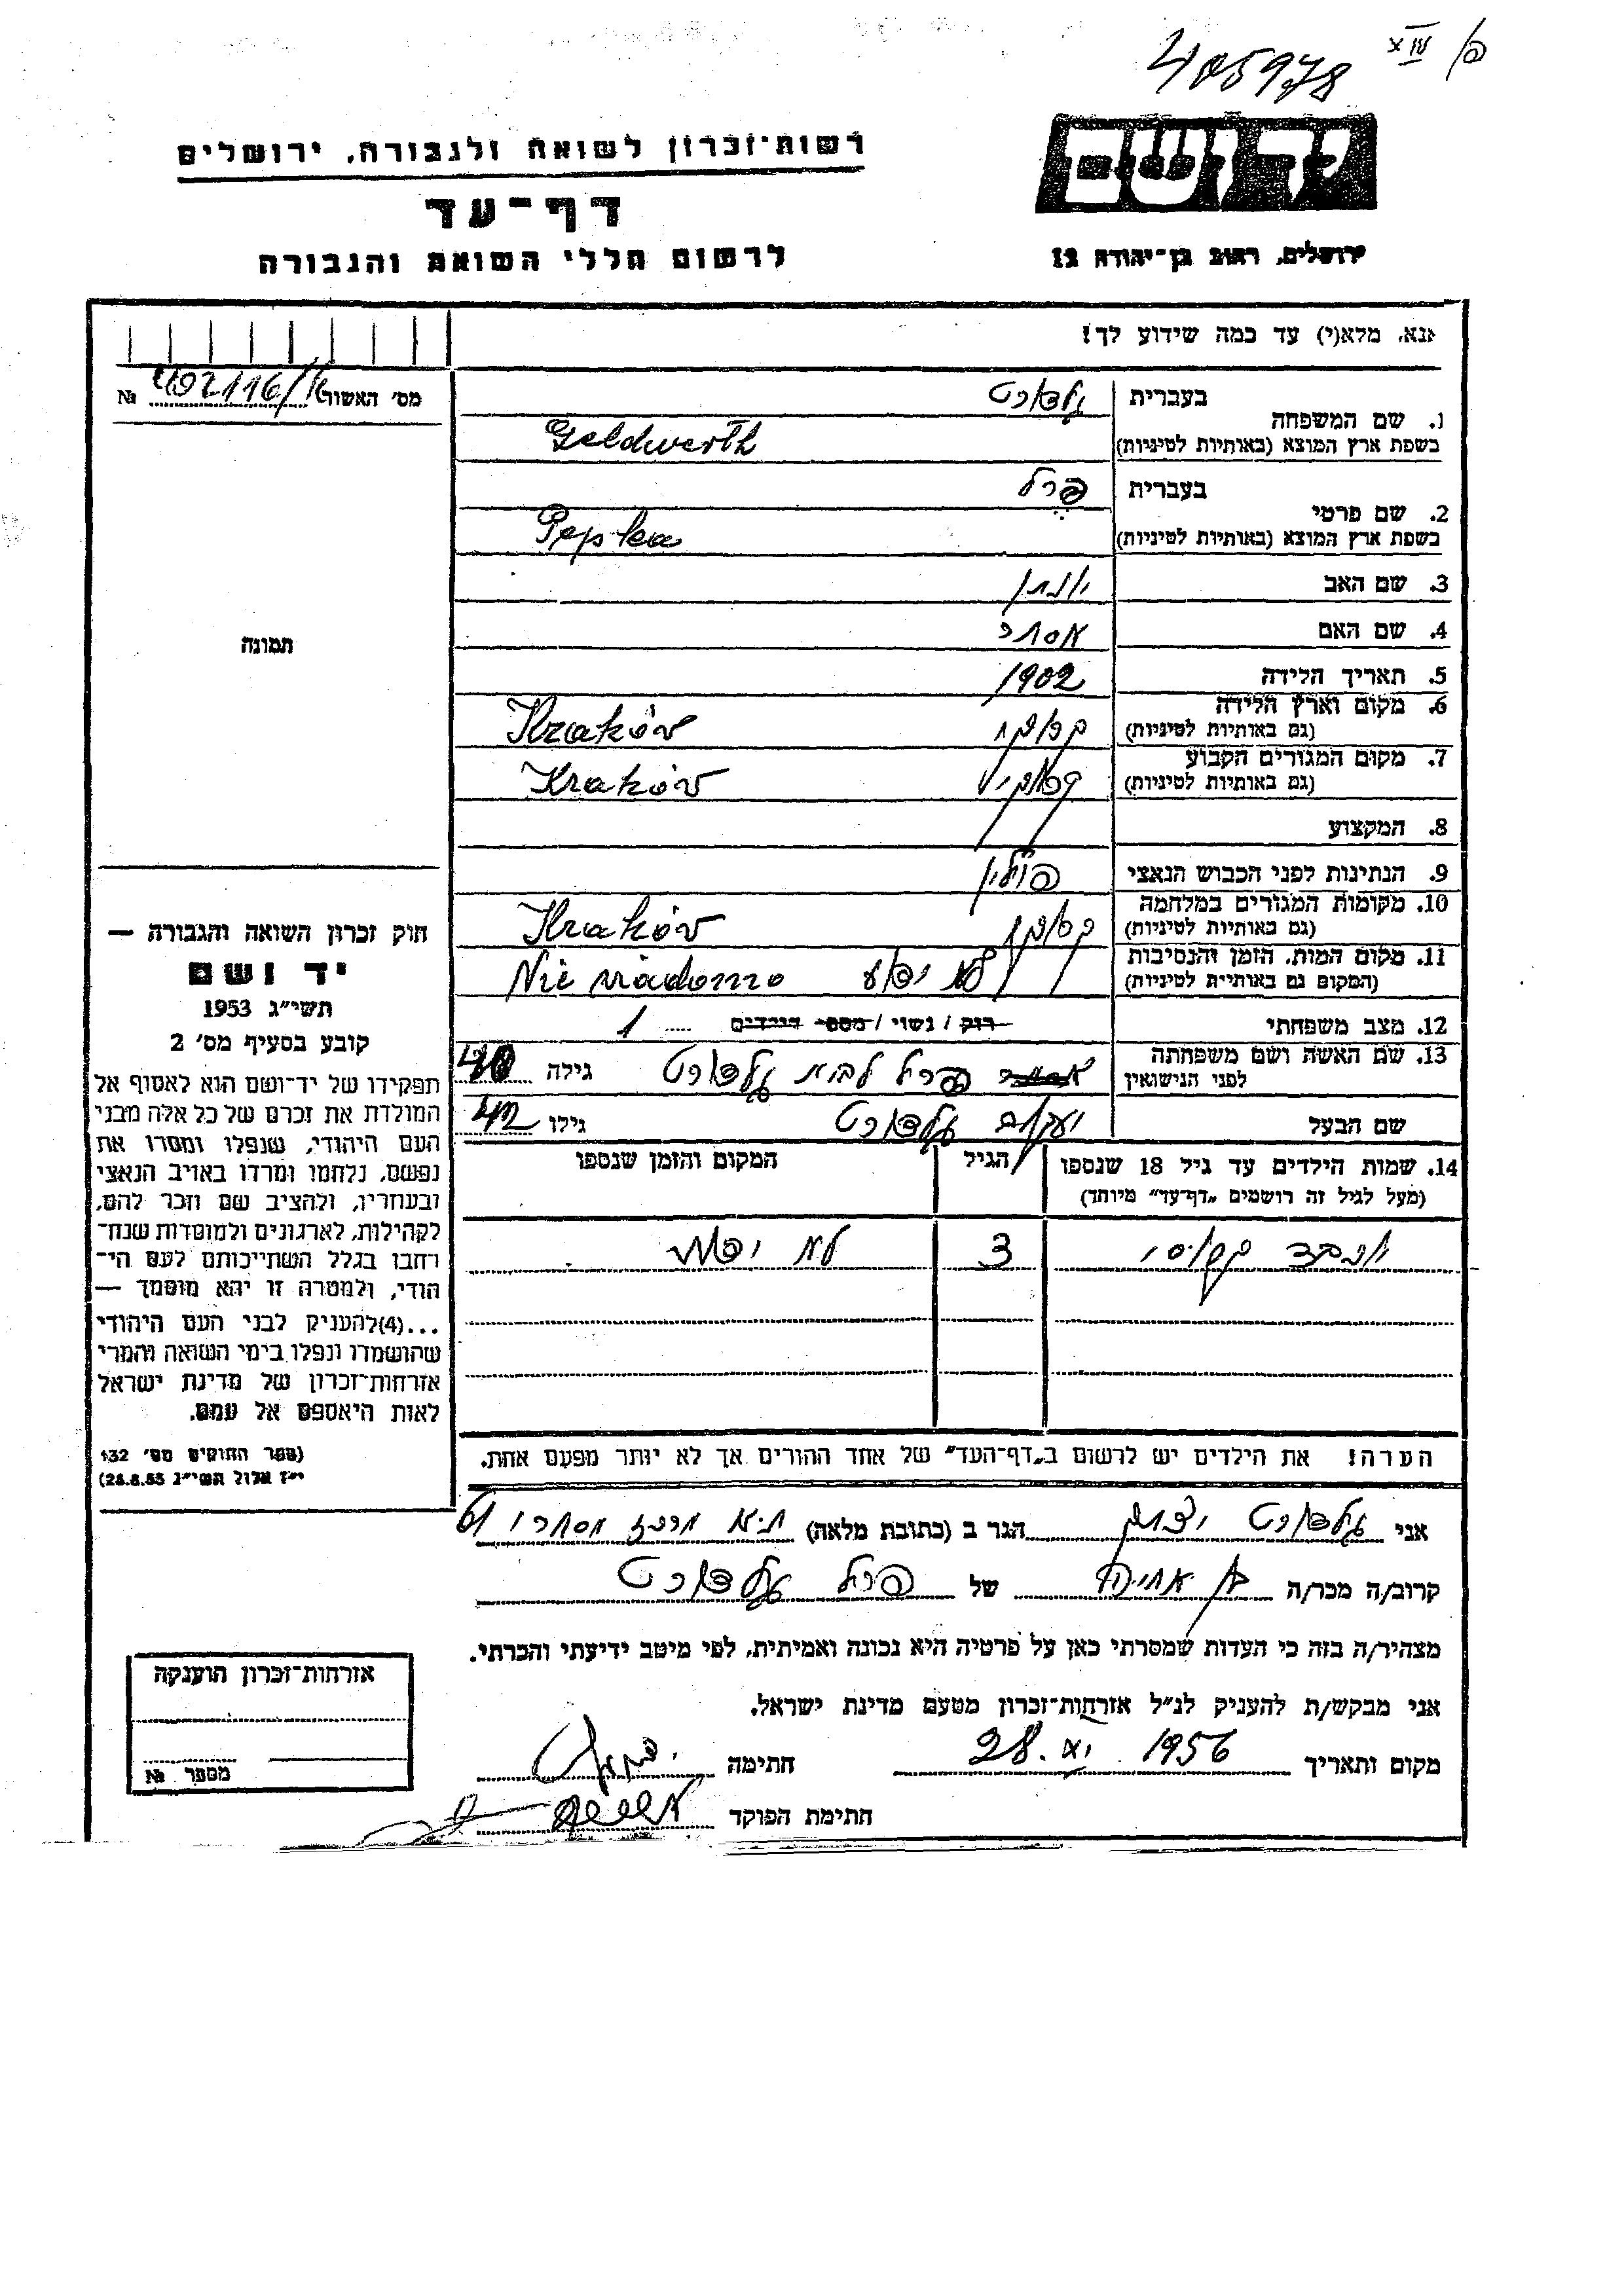 405978
XIV
יד ושם
רשות־זכרון לשואה ולגבורה, ירושלים
דף־עד
לרשום חללי השואה והגבורה
ירושלים, רחוב בן־יהודה 12
אנא, מלא(י) עד כמה שידוע לך!
מס' האשור №
בעברית
1. שם המשפחה
בשפת ארץ המוצא (באותיות לטיניות) Geldwerth
בעברית פרל
2. שם פרטי
בשפת ארץ המוצא (באותיות לטיניות) Pepka
3. שם האב יונתן
4. שם האם אסתר
5. תאריך הלידה 1902
6. מקום וארץ הלידה
(גם באותיות לטיניות) קרקוב Kraków
7. מקום המגורים הקבוע
(גם באותיות לטיניות) Kraków
8. המקצוע
9. הנתינות לפני הכבוש הנאצי פולין
10. מקומות המגורים במלחמה
(גם באותיות לטיניות) קרקוב Kraków
11. מקום המות, הזמן והנסיבות
(המקום גם באותיות לטיניות) לא ידוע Nie wiadomo
12. מצב משפחתי רוק / נשוי / מספר הילדים 1
13. שם האשה ושם משפחתה
לפני הנישואין פרל לבית גלדורט גילה
שם הבעל יעקב גלדורט גילו 42
14. שמות הילדים עד גיל 18 שנספו הגיל המקום והזמן שנספו
(מעל לגיל זה רושמים "דף־עד" מיוחד)
3 לא ידוע
הערה! את הילדים יש לרשום ב"דף־העד" של אחד ההורים אך לא יותר מפעם אחת.
אני גלדורט יצחק הגר ב (כתובת מלאה) ת"א
קרוב/ה מכר/ה בן אחיה של פרל גלדורט
מצהיר/ה בזה כי העדות שמסרתי כאן על פרטיה היא נכונה ואמיתית, לפי מיטב ידיעתי והכרתי.
אני מבקש/ת להעניק לנ"ל אזרחות־זכרון מטעם מדינת ישראל.
מקום ותאריך 28. XI. 1956 חתימה
חתימת הפוקד
תמונה
חוק זכרון השואה והגבורה —
יד ושם
תשי"ג 1953
קובע בסעיף מס' 2
תפקידו של יד־ושם הוא לאסוף אל
המולדת את זכרם של כל אלה מבני
העם היהודי, שנפלו ומסרו את
נפשם, נלחמו ומרדו באויב הנאצי
ובעוזריו, ולהציב שם וזכר להם,
לקהילות, לארגונים ולמוסדות שנח־
רחבו בגלל השתייכותם לעם הי־
הודי, ולמטרה זו יהא מוסמך —
...(4)להעניק לבני העם היהודי
שהושמדו ונפלו בימי השואה והמרי
אזרחות־זכרון של מדינת ישראל
לאות היאספם אל עמם.
(ספר החוקים מס' 132
י"ז אלול תשי"ג 28.8.53)
אזרחות־זכרון הוענקה
מספר №